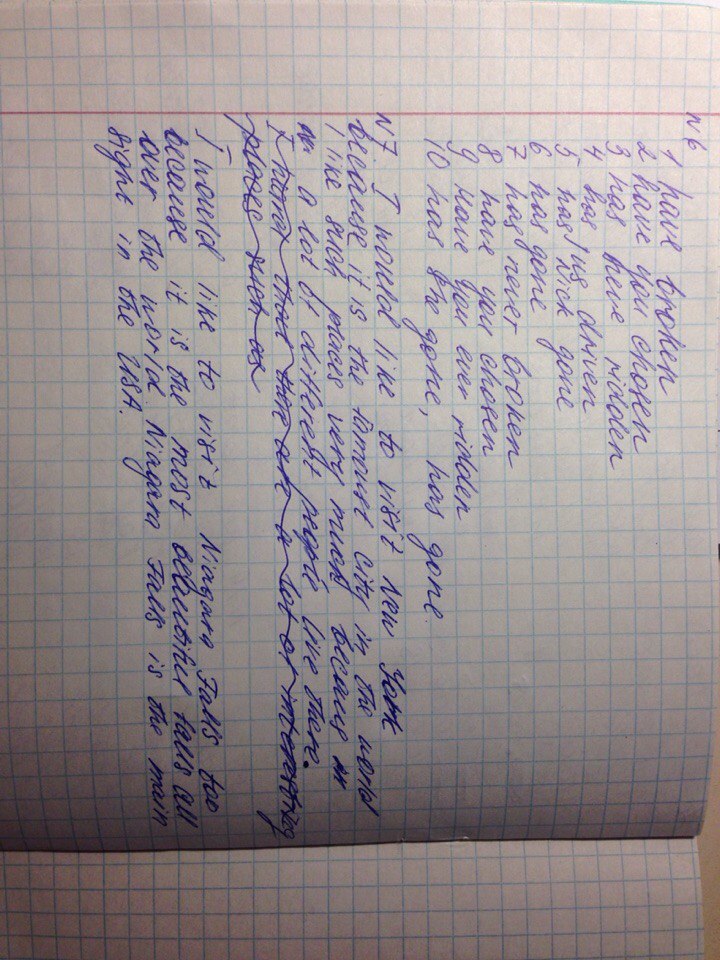 N6
1 have broken
2 have you chosen
3 has have ridden
4 has driven
5 has Nick gone
6 has gone
7 has never broken
8 have you chosen
9 Have you ever ridden
10 has she gone, has gone
N7 I would like to visit New York
because it is the famoust city in the world
I like such places very much because
a lot of different people live there.
I would like to visit Niagara Falls too
because it is the most beautiful falls all
over the world. Niagara Falls is the main
sight in the USA.